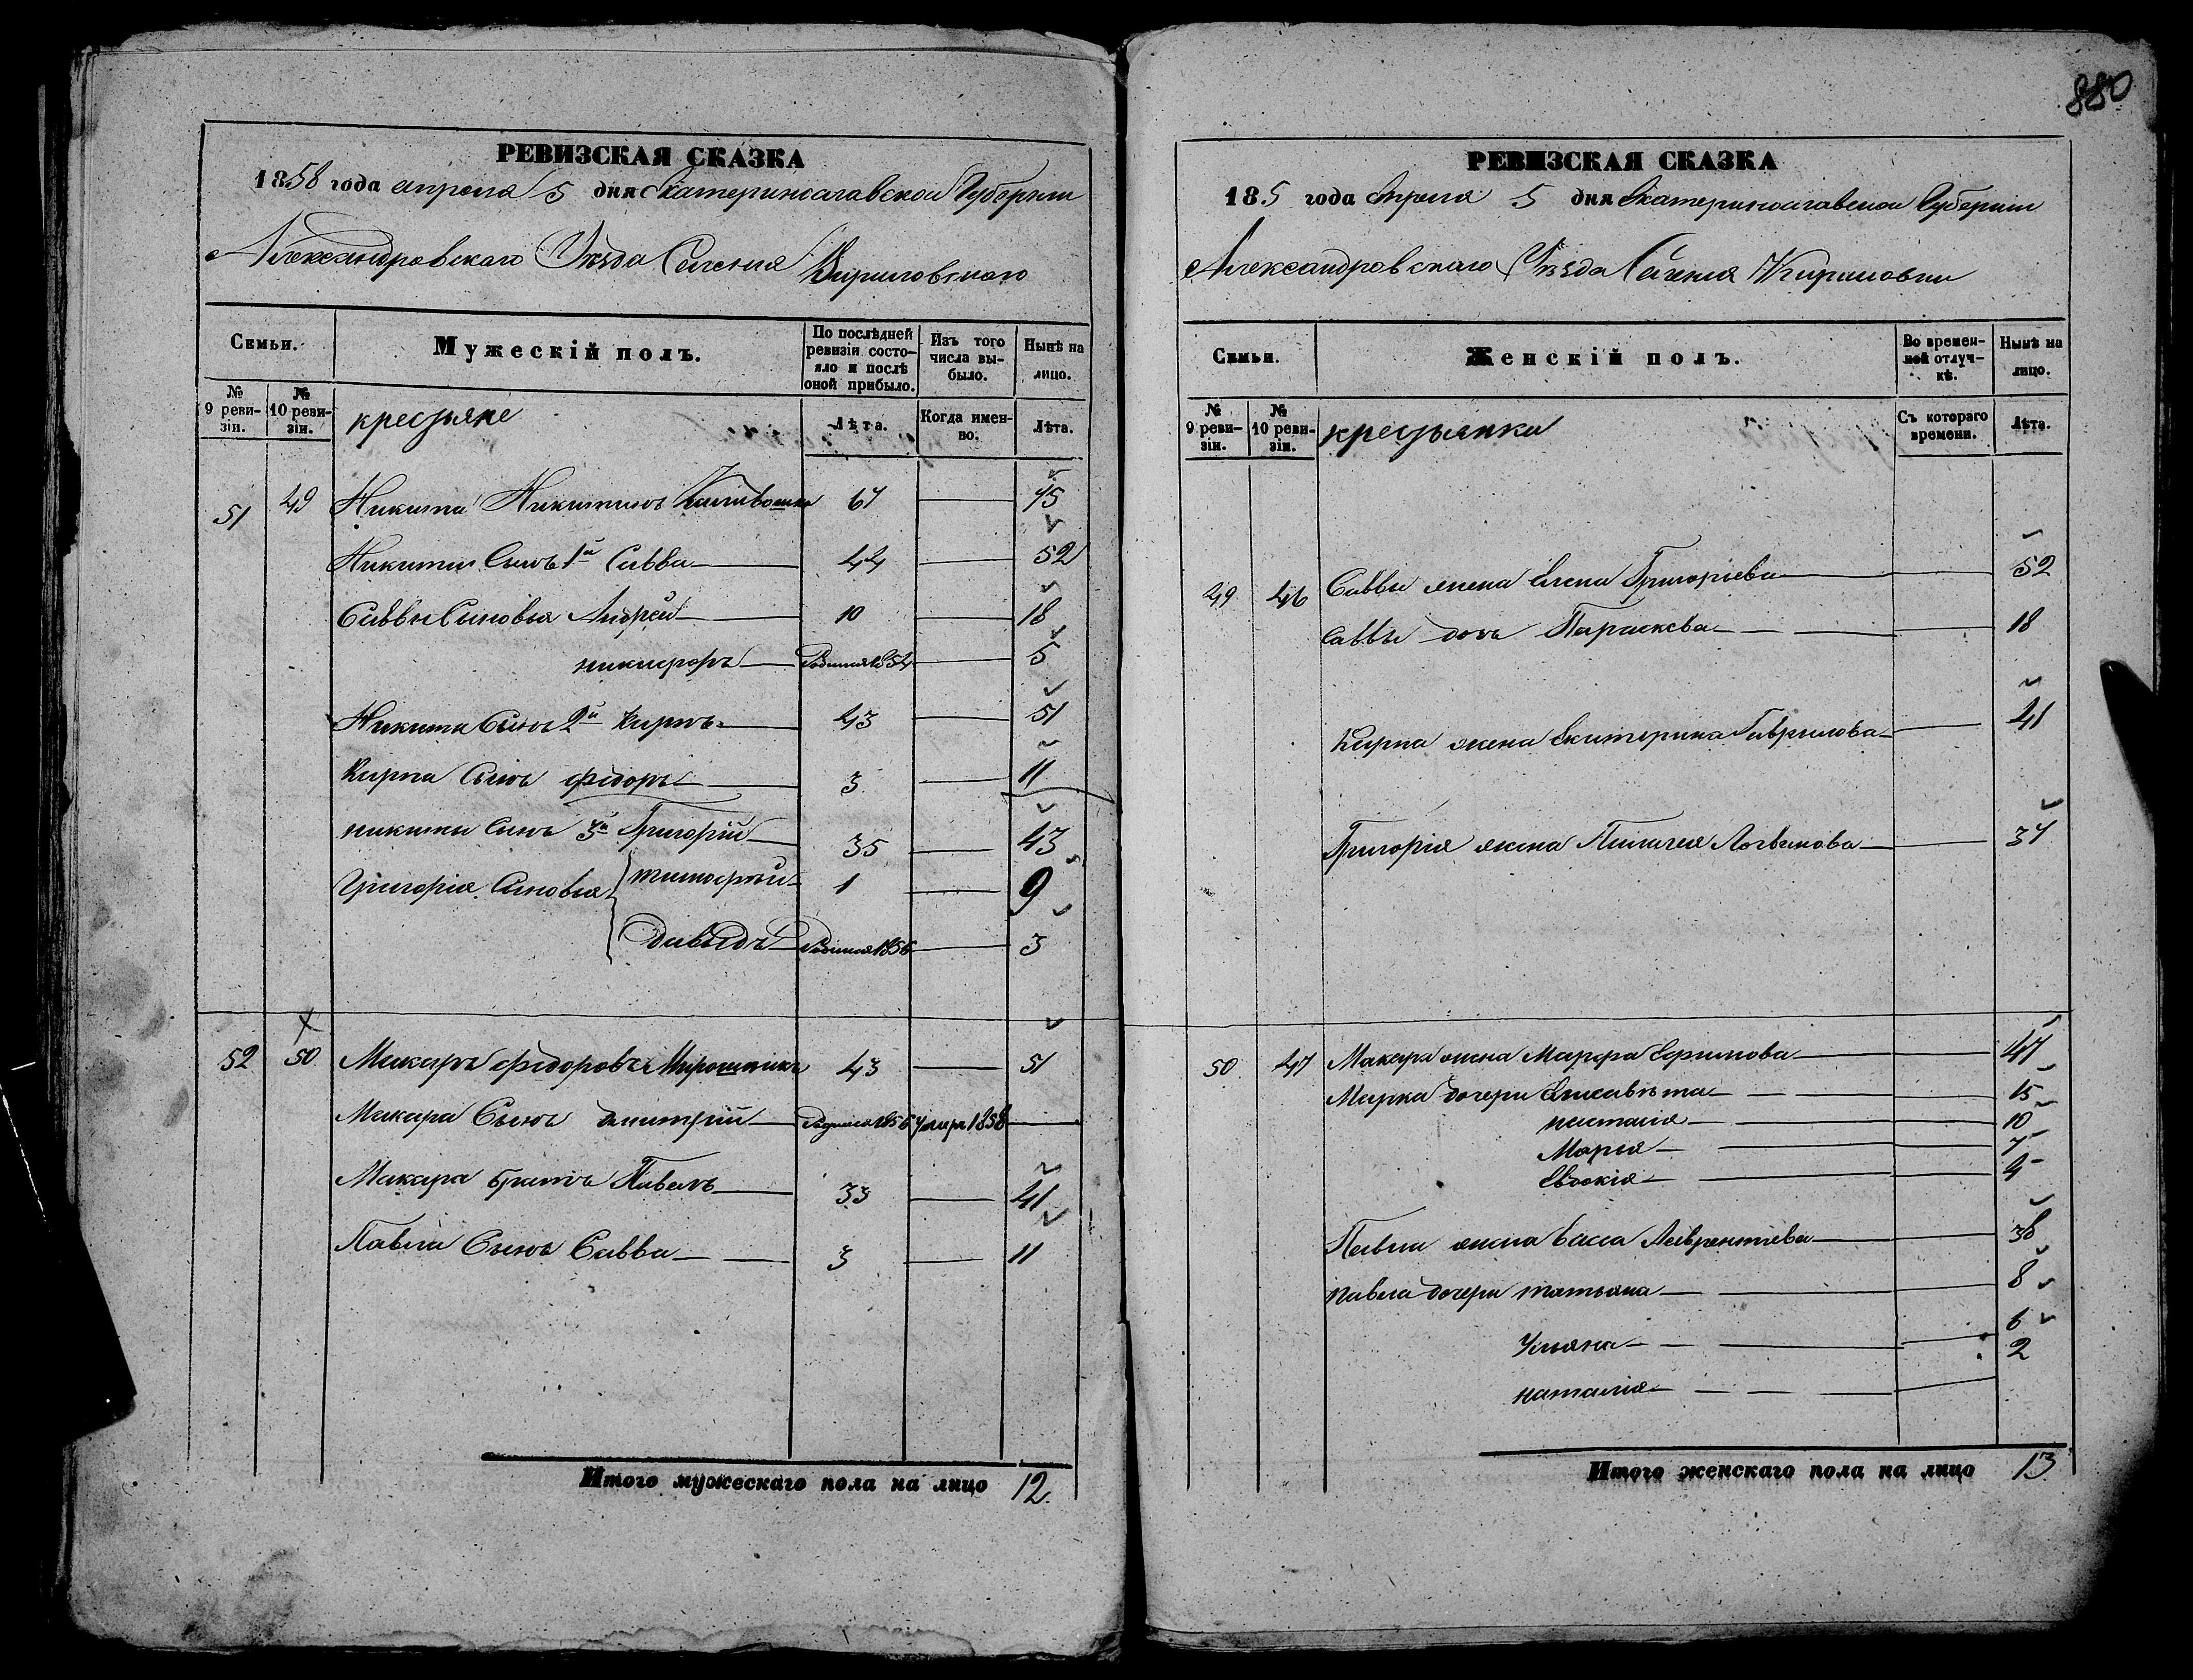 880
РЕВИЗСКАЯ СКАЗКА
1858 года апреля 5 дня Екатеринославской Губернии
Александровского Уезда Селения Кириловского
Семьи.
Мужескій полъ.
По послѣдней ревизіи состояло и послѣ оной прибыло.
Изъ того числа выбыло.
Нынѣ на лицо.
№ 9 ревизіи.
№ 10 ревизіи.
крестьяне
Лѣта.
Когда именно.
Лѣта.
51 49 Никита Никитинъ 67 — 75
Никиты Сынъ 1й Савва — 44 — 52
Саввы Сыновья Андрей — 10 — 18
никифоръ — Родился 1854 — 5
Никиты Сынъ 2й Карпъ — 43 — 51
Карпа Сынъ федоръ — 3 — 11
никиты Сынъ 3й Григорій — 35 — 43
Григорія Сыновья тимофей — 1 — 9
давыдъ — Родился 1856 — 3
52 50 Макаръ федоровъ Мирошникъ 43 — 51
Макара Сынъ дмитрій — Родился 1856 Умеръ 1858 —
Макара братъ Павелъ — 33 — 41
Павла Сынъ Савва — 3 — 11
Итого мужескаго пола на лицо 12.
РЕВИЗСКАЯ СКАЗКА
185 года Апреля 5 дня Екатеринославской Губернии
Александровского Уезда Селения Кириловки
Семьи.
Женскій полъ.
Во временной отлучкѣ.
Нынѣ на лицо.
№ 9 ревизіи.
№ 10 ревизіи.
крестьянки
Съ котораго времени.
Лѣта.
49 46 Саввы жена Елена Григорьева — 52
Саввы дочь Параскева — 18
Карпа жена Екатерина Гаврилова — 41
Григорія жена Пилагея Логвинова — 37
50 47 Макара жена Марфа Ефимова — 47
Марка дочери Елисавѣта — 15
настасія — 10
Марія — 7
Евдокія — 4
Павла жена Васса Лаврентіева — 38
павла дочери татьяна — 8
Ульяна — 6
наталія — 2
Итого женскаго пола на лицо 13